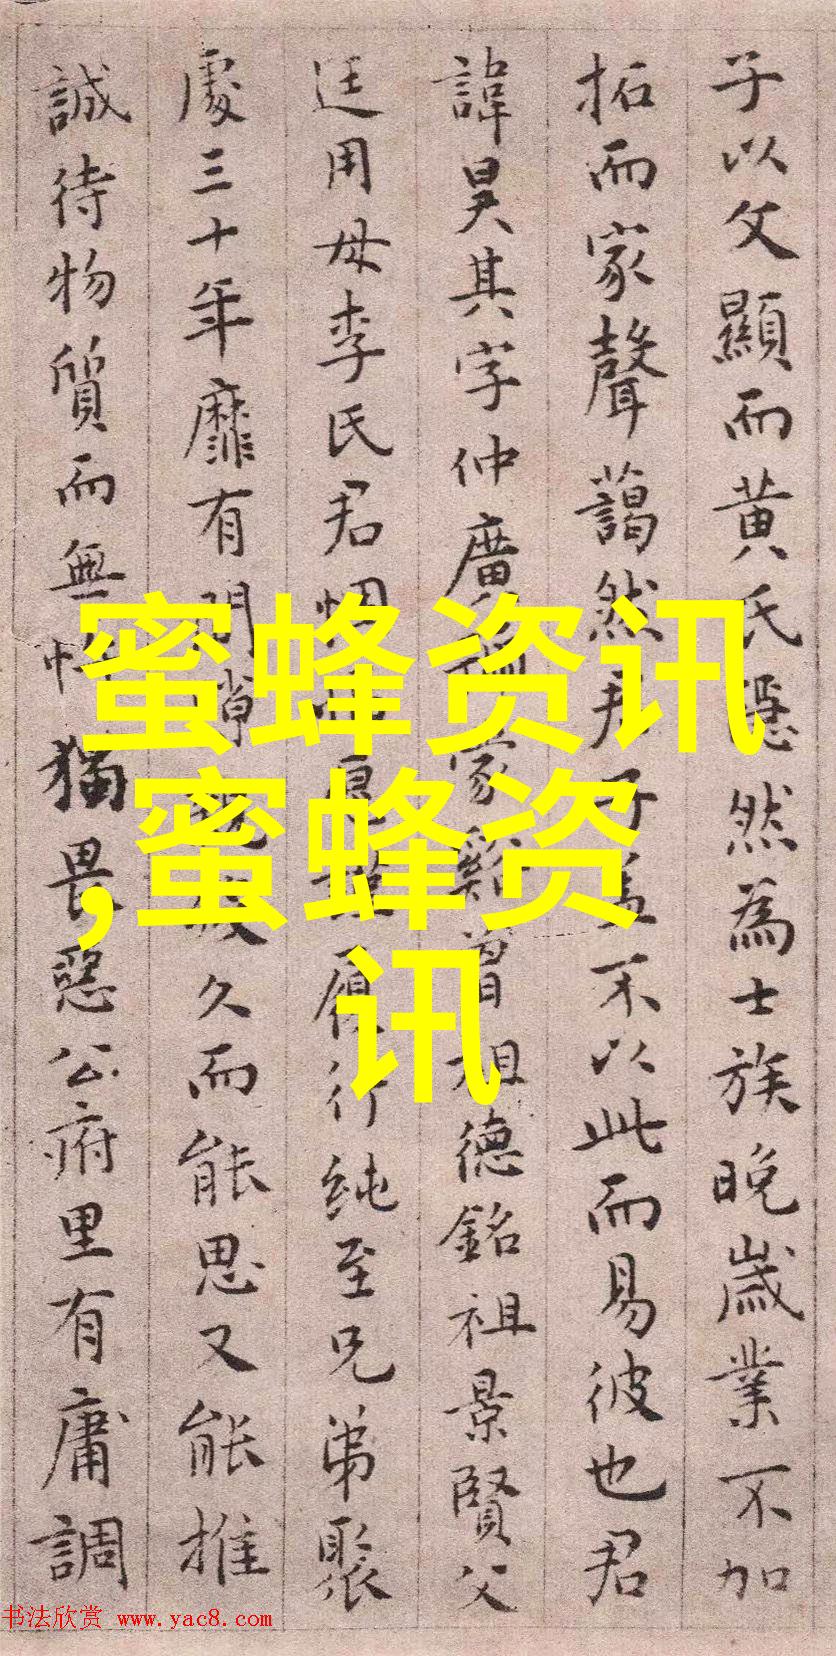 子以父顯而黄氏隱然為士族晚歲業不加
拓而家聲藹然君子蓋不以此而易彼也君
諱昊其字仲廣豫曾祖德銘祖景賢父
廷用母李氏君悃履行純至兄弟聚
處三十年靡有間久而能思又能推
誠待物質而無忤猶畏惡公府里有庸調
蜜蜂资讯
,蜜蜂资
讯
书法欣赏 www.yac8.com